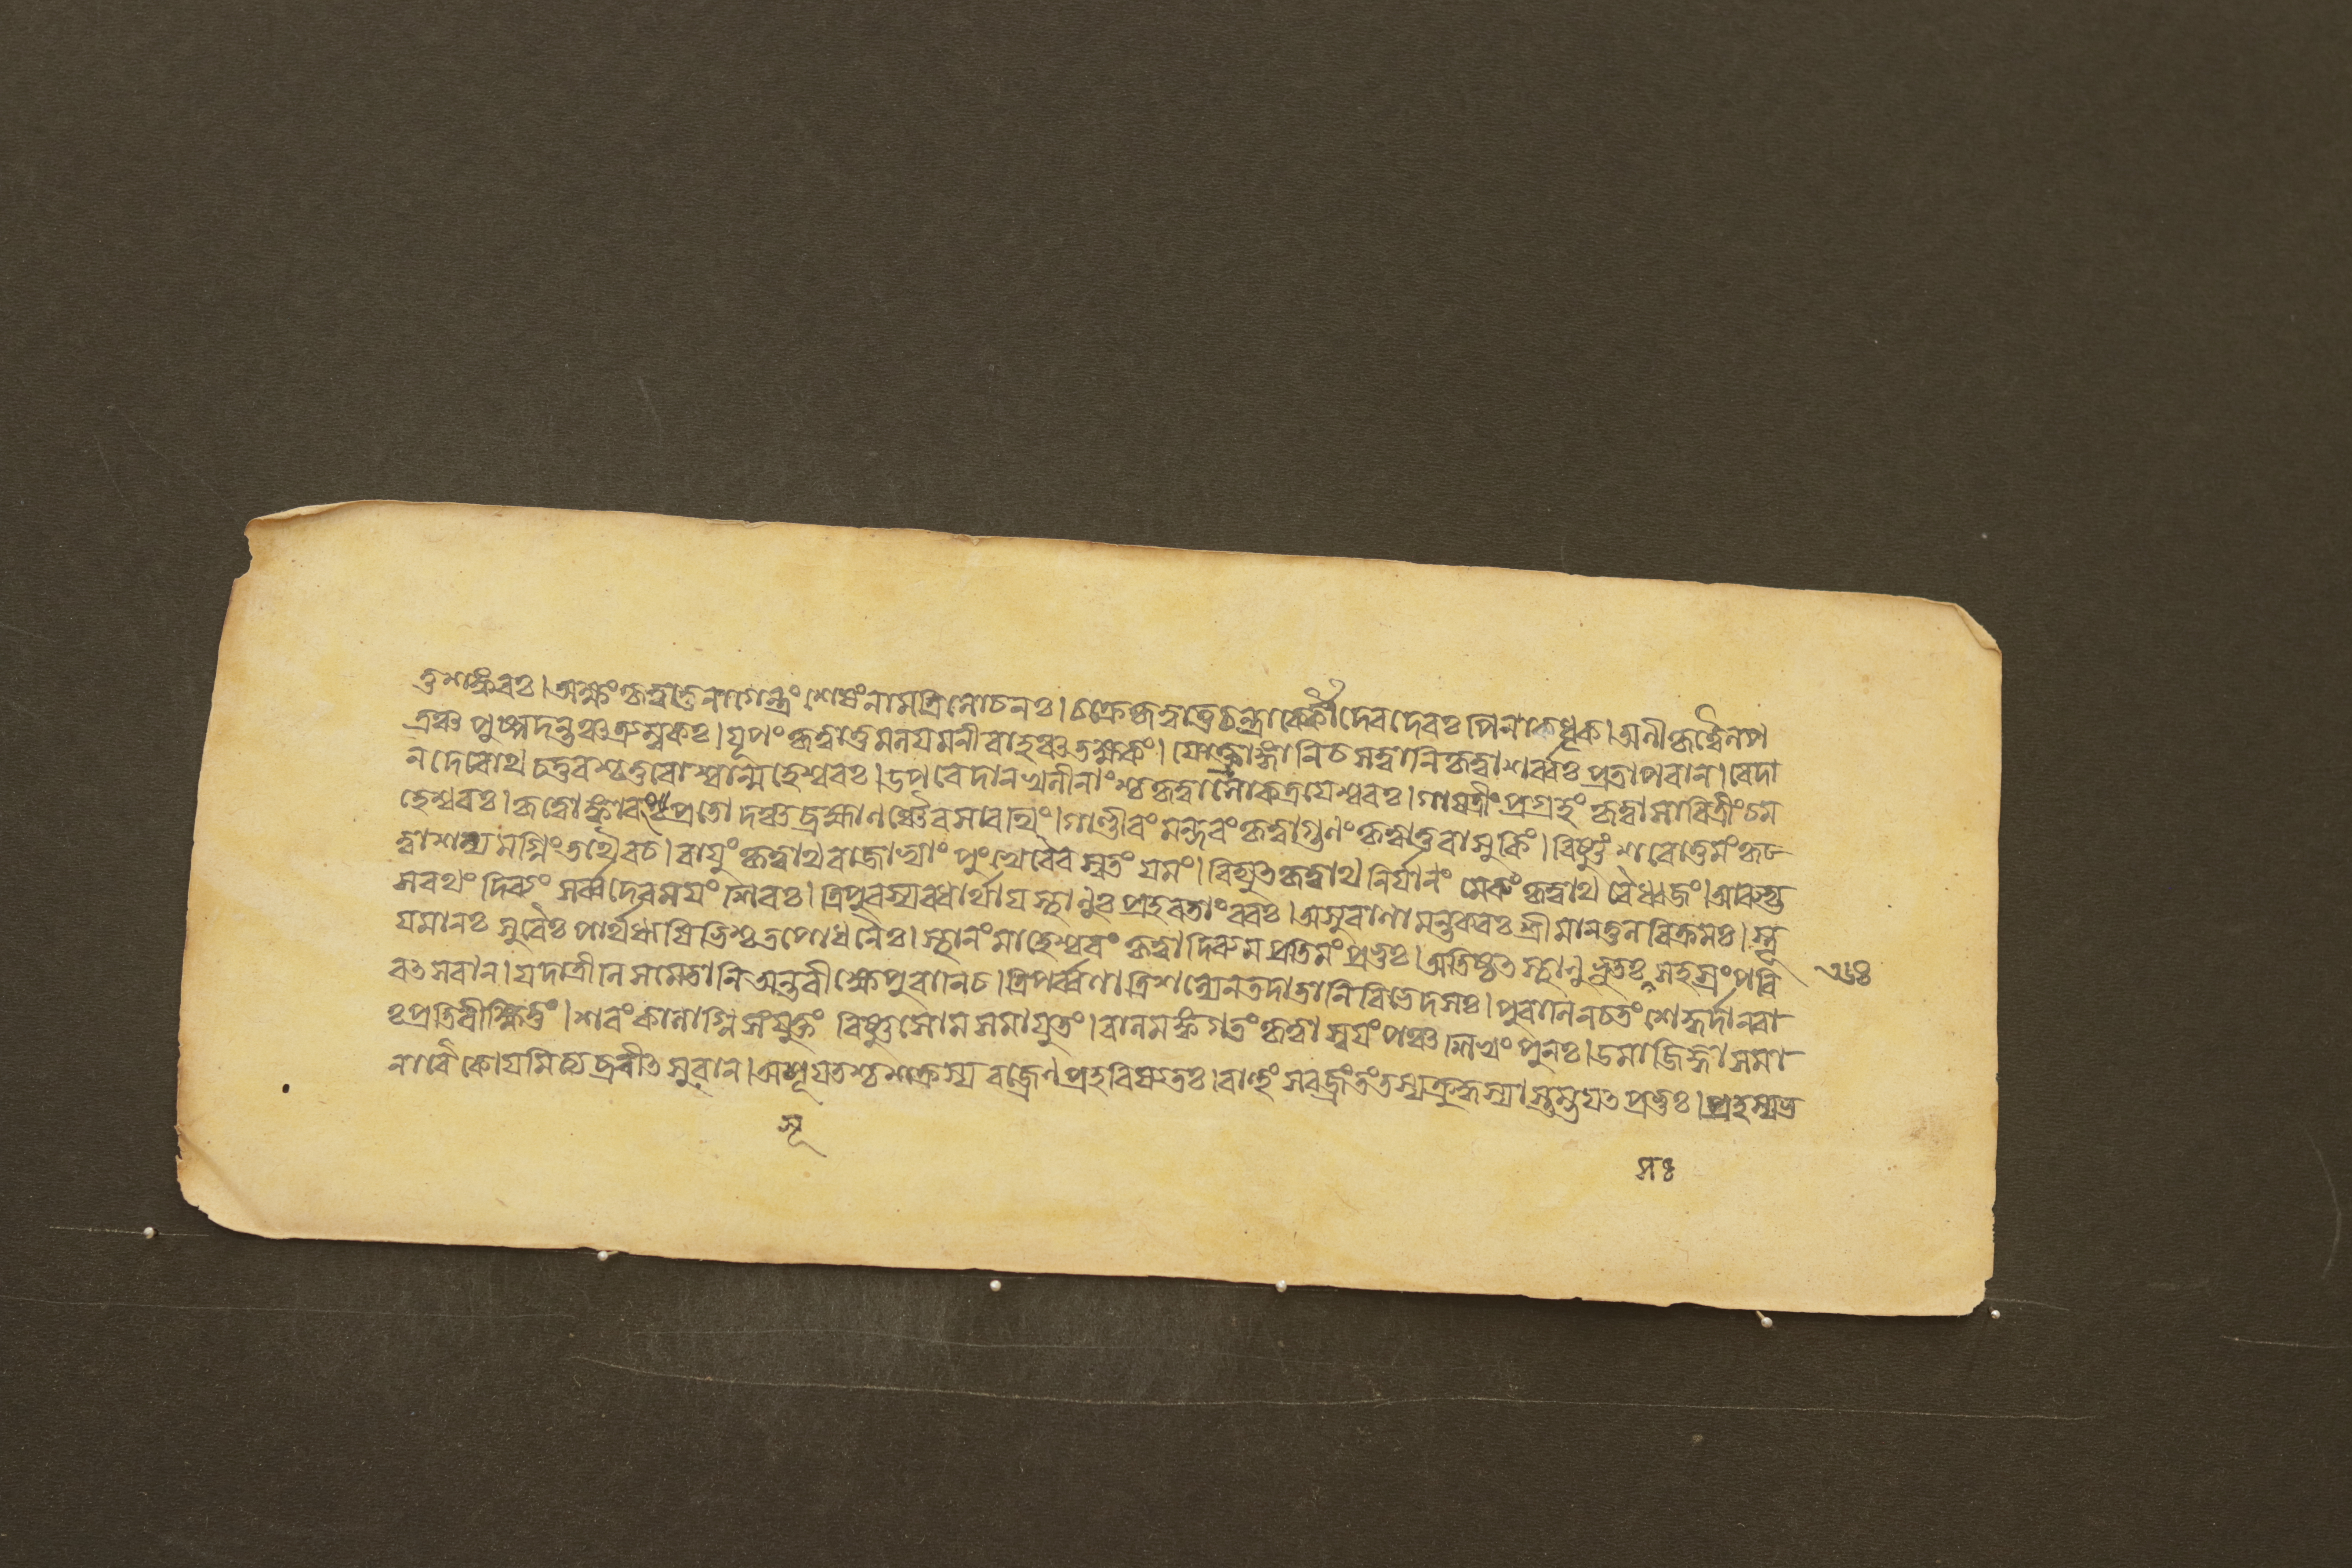 তু শঙ্করঃ। অক্ষং কৃত্বা তু নাগেন্দ্রং শেষং নাম ত্রিলোচনঃ। চক্রে কৃত্বা তু চন্দ্রার্কৌ দেবদেবঃ পিনাকধৃক। অনী কৃত্বৈলপ
ত্রঞ্চ পুষ্পদন্তঞ্চ ত্র্যম্বকঃ। যূপং কৃত্বা তু মলযমনীবাহঞ্চ তক্ষকং। যোক্ত্রাঙ্গানি চ সত্বানি কৃত্বা শর্ব্বঃ প্রতাপবান। বেদা
ন দেবোথ চতুরশ্চতুরোশ্বান্মহেশ্বরঃ। উপবেদান খলীনাংশ্চ কৃত্বা লোকত্রযেশ্বরঃ। গাযত্রীং প্রগ্রহং কৃত্বা সাবিত্রীং চ ম
হেশ্বরঃ। কৃত্বোঙ্কারং প্রতোদঞ্চ ব্রহ্মাণঞ্চৈব সারথিং। গাণ্ডীবং মন্দরং কৃত্বা গুণং কৃত্বা তু বাসুকিং। বিষ্ণুং শরোত্তমং কৃ
ত্বা শল্যমগ্নিং তথৈব চ। বাযুং কৃত্বাথ বাজাভ্যাং পুংখে বৈবস্বতং যমং। বিদ্যুত কৃত্বাথ নির্যানং মেরুং কৃত্বাথ বৈ ধ্বজং। আরুহ্য
স রথং দিব্যং সর্ব্বদেবমযং শিবঃ। ত্রিপুরস্য বধার্থায স্থাণুঃ প্রহরতাং বরঃ। অসুরাণামন্তকরঃ শ্রীমানতুলবিক্রমঃ। স্তূ
যমানঃ সুরৈঃ পার্থ ঋষিভিশ্চ তপোধনৈঃ। স্থানং মাহেশ্বরং কৃত্বা দিব্যমপ্রতিমং প্রভুঃ। অতিষ্ঠত স্থাণুভূতঃ সহস্রং পরি
বত্সরান। যদা ত্রীনি সমেতানি অন্তরীক্ষে পুরাণি চ। ত্রিপর্ব্বণা ত্রিশল্যেন তদা তানি বিভেদ সঃ। পুরাণি ন চ তং শেকুর্দানবা
ঃ প্রতিবীক্ষিতুং। শরং কালাগ্নিসংযুক্তং বিষ্ণুসোমসমাযুতং। বালমঙ্কগতং কৃত্বা স্বযং পঞ্চশিখং পুনঃ। উমা জিজ্ঞাসমা
না বৈ কোযমিত্যব্রবীত সুরান। অসূযতশ্চ শক্রস্য বজ্রেণ প্রহরিষ্যতঃ। বাহুং সবজ্রং তং তস্য ক্রুদ্ধস্যাস্তম্ভযত প্রভুঃ। প্রহস্য ভ
সূ